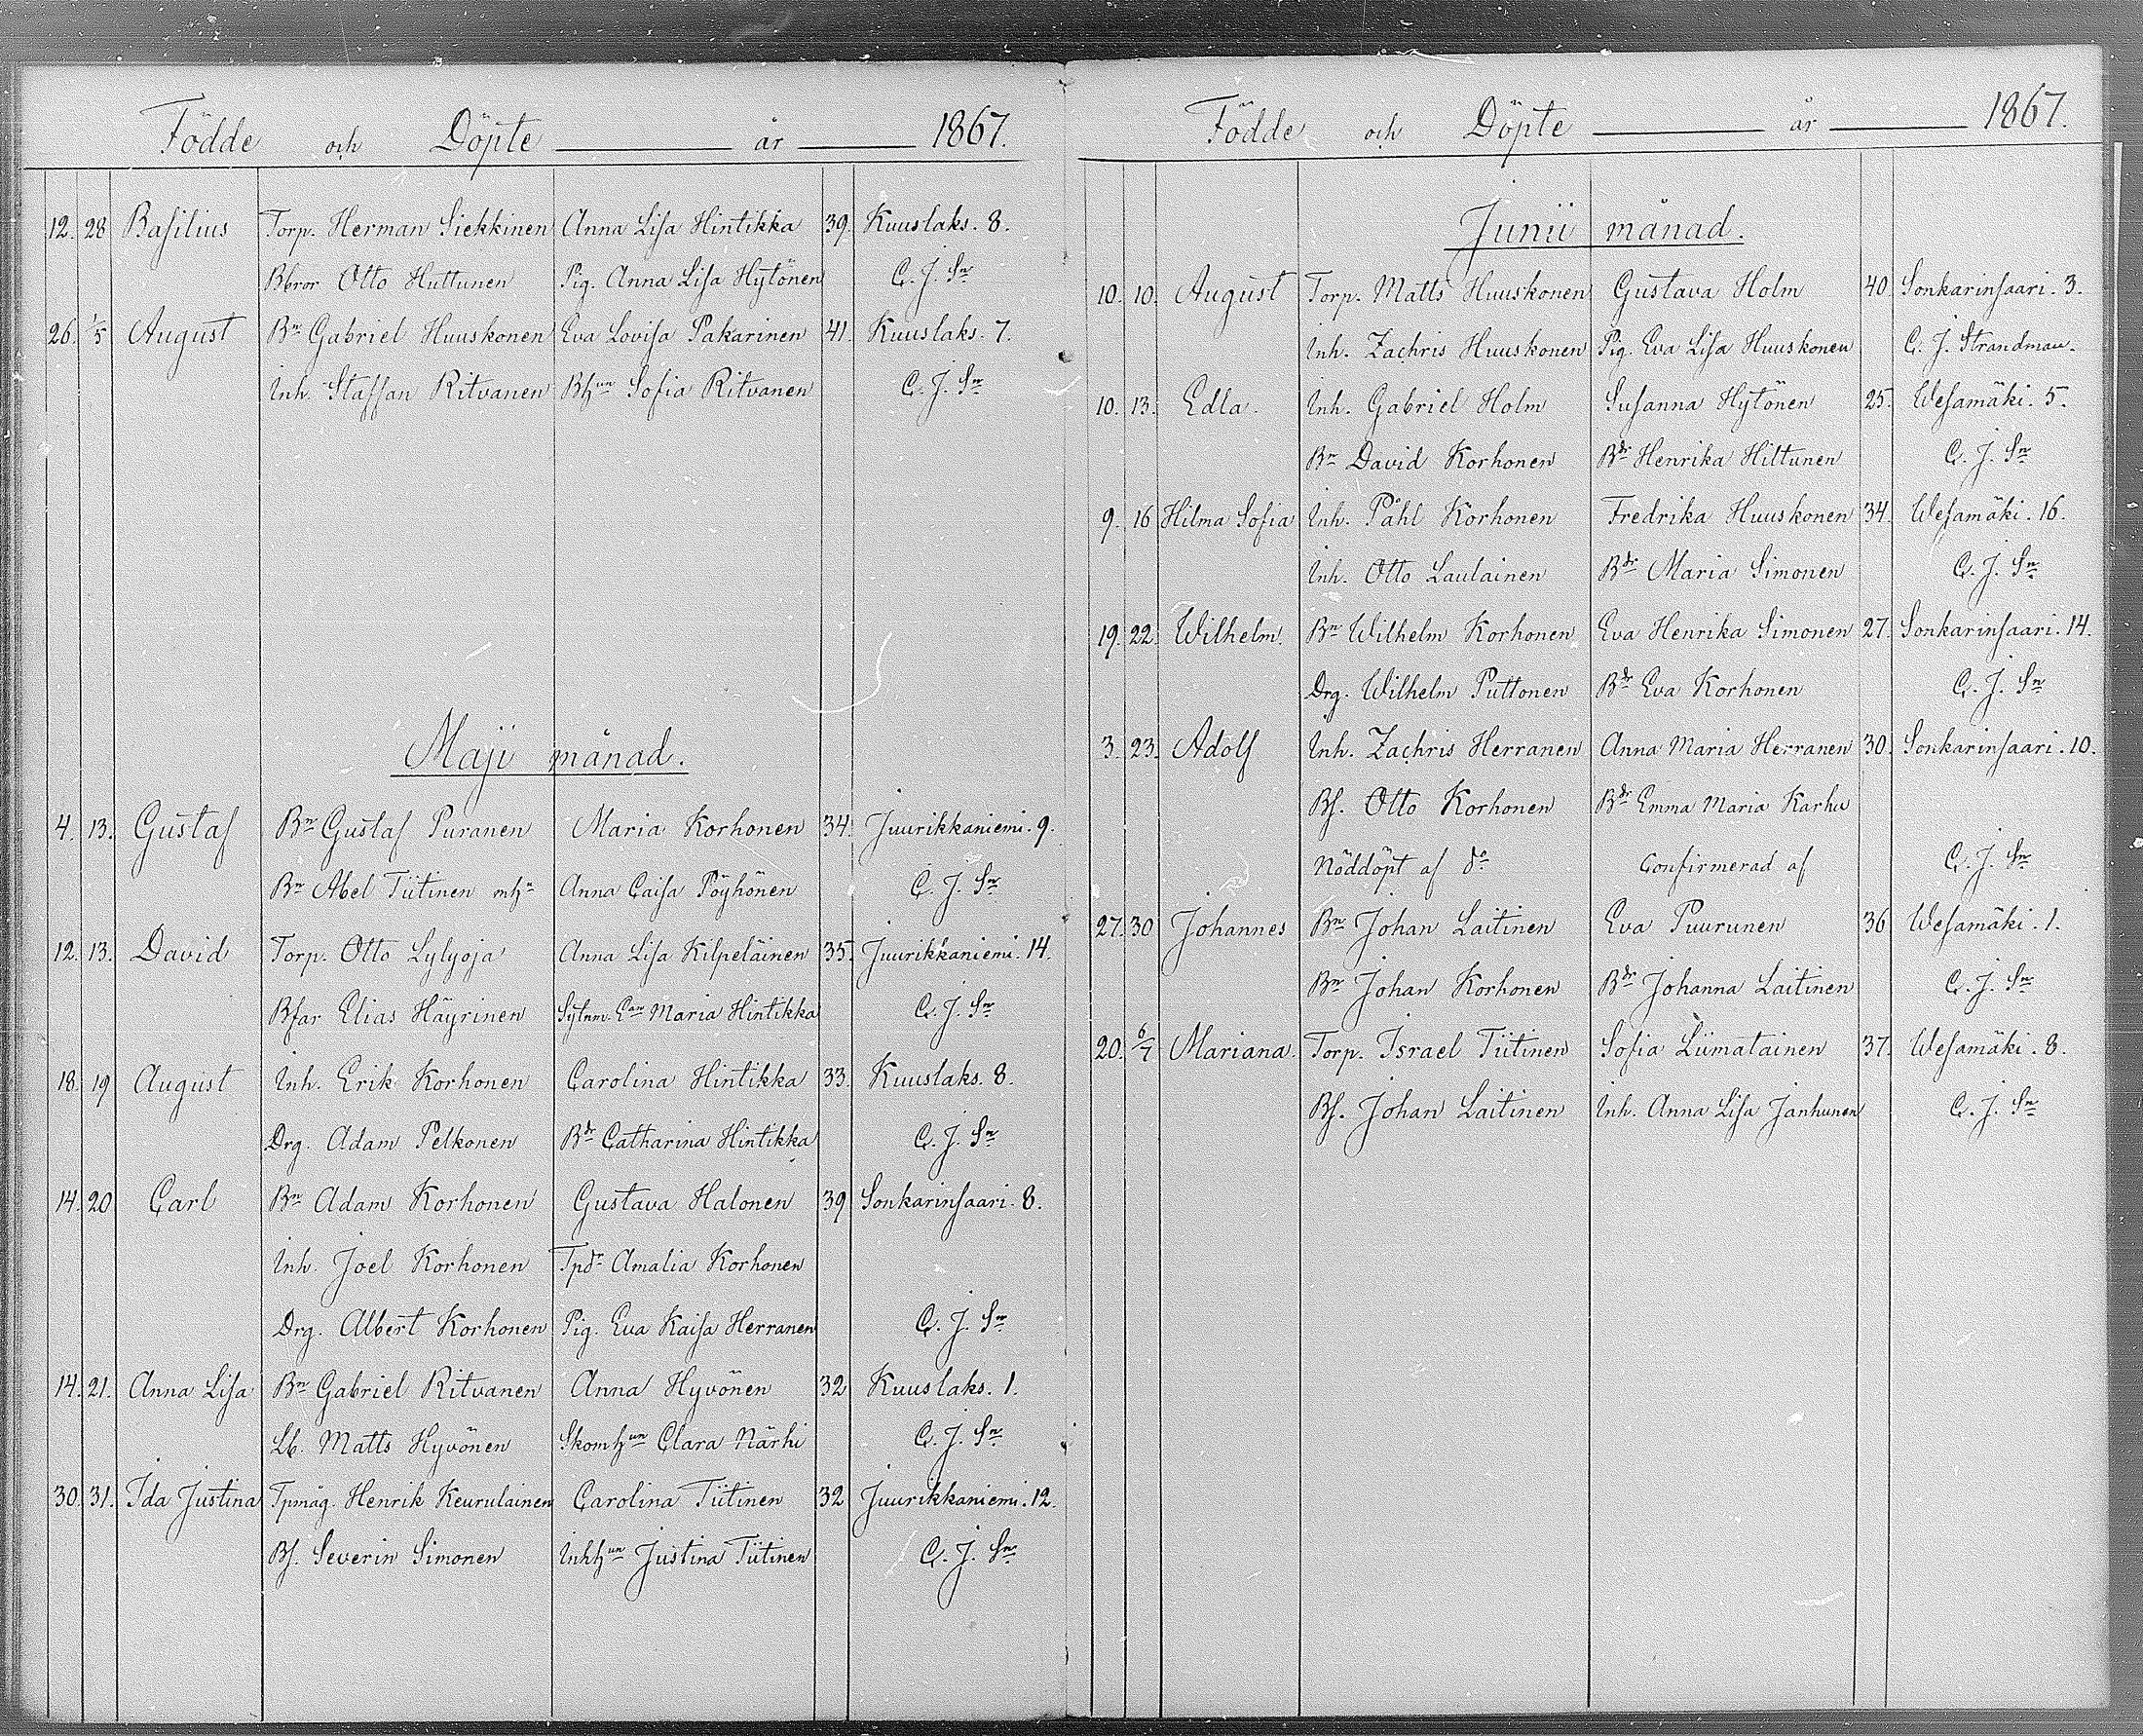 Födde och Döpte år 1867.
12. 28 Basilius Torp. Herman Siekkinen Anna Lisa Hintikka 39. Kuuslaks. 8.
Bbror Otto Huttunen Pig. Anna Lisa Hytönen C. J. Sn
26. 1/5 August Bn Gabriel Huuskonen Eva Lovisa Pakarinen 41. Kuuslaks. 7.
Inh. Staffan Ritvanen Bhun Sofia Ritvanen C. J. Sn
Maji månad.
4. 13. Gustaf Bn Gustaf Puranen Maria Korhonen 34. Juurikkaniemi. 9.
Bn Abel Tiitinen mhn Anna Caisa Pöyhönen C. J. Sn
12. 13. David Torp. Otto Lylyoja Anna Lisa Kilpeläinen 35. Juurikkaniemi. 14.
Bfar Elias Häyrinen Maria Hintikka C. J. Sn
18. 19 August Inh. Erik Korhonen Carolina Hintikka 33. Kuuslaks. 8.
Drg. Adam Pelkonen Bdr Catharina Hintikka C. J. Sn
14. 20 Carl Bn Adam Korhonen Gustava Halonen 39 Sonkarinsaari. 8.
Inh. Joel Korhonen Tpdr Amalia Korhonen
Drg. Albert Korhonen Pig. Eva Kaisa Herranen C. J. Sn
14. 21. Anna Lisa Bn Gabriel Ritvanen Anna Hyvönen 32 Kuuslaks. 1.
Lb. Matts Hyvönen Skomhun Clara Närhi C. J. Sn
30. 31. Ida Justina Tpmåg. Henrik Keurulainen Carolina Tiitinen 32 Juurikkaniemi. 12.
Bs. Severin Simonen Inhhun Justina Tiitinen C. J. Sn
Födde och Döpte år 1867.
Junii månad.
10. 10. August Torp. Matts Huuskonen Gustava Holm 40 Sonkarinsaari. 3.
Inh. Zachris Huuskonen Pig. Eva Lisa Huuskonen C. J. Strandman.
10. 13. Edla. Inh. Gabriel Holm Susanna Hytönen 25. Wesamäki. 5.
Bn David Korhonen Bdr Henrika Hiltunen C. J. Sn
9. 16 Hilma Sofia Inh. Påhl Korhonen Fredrika Huuskonen 34. Wesamäki. 16.
Inh. Otto Laulainen Bdr Maria Simonen C. J. Sn
19. 22. Wilhelm. Bn Wilhelm Korhonen Eva Henrika Simonen 27. Sonkarinsaari. 14.
Drg. Wilhelm Puttonen Bdr Eva Korhonen C. J. Sn
3. 23. Adolf Inh. Zachris Herranen Anna Maria Herranen 30. Sonkarinsaari. 10.
Bs. Otto Korhonen Bdr Emma Maria Karhu
Nöddöpt af do Confirmerad af C. J. Sn
27. 30 Johannes Bn Johan Laitinen Eva Puurunen 36 Wesamäki. 1.
Bn Johan Korhonen Bdr Johanna Laitinen C. J. Sn
20. 6/7 Mariana. Torp. Israel Tiitinen Sofia Liimatainen 37. Wesamäki. 8.
Bs. Johan Laitinen Inh. Anna Lisa Janhunen C. J. Sn